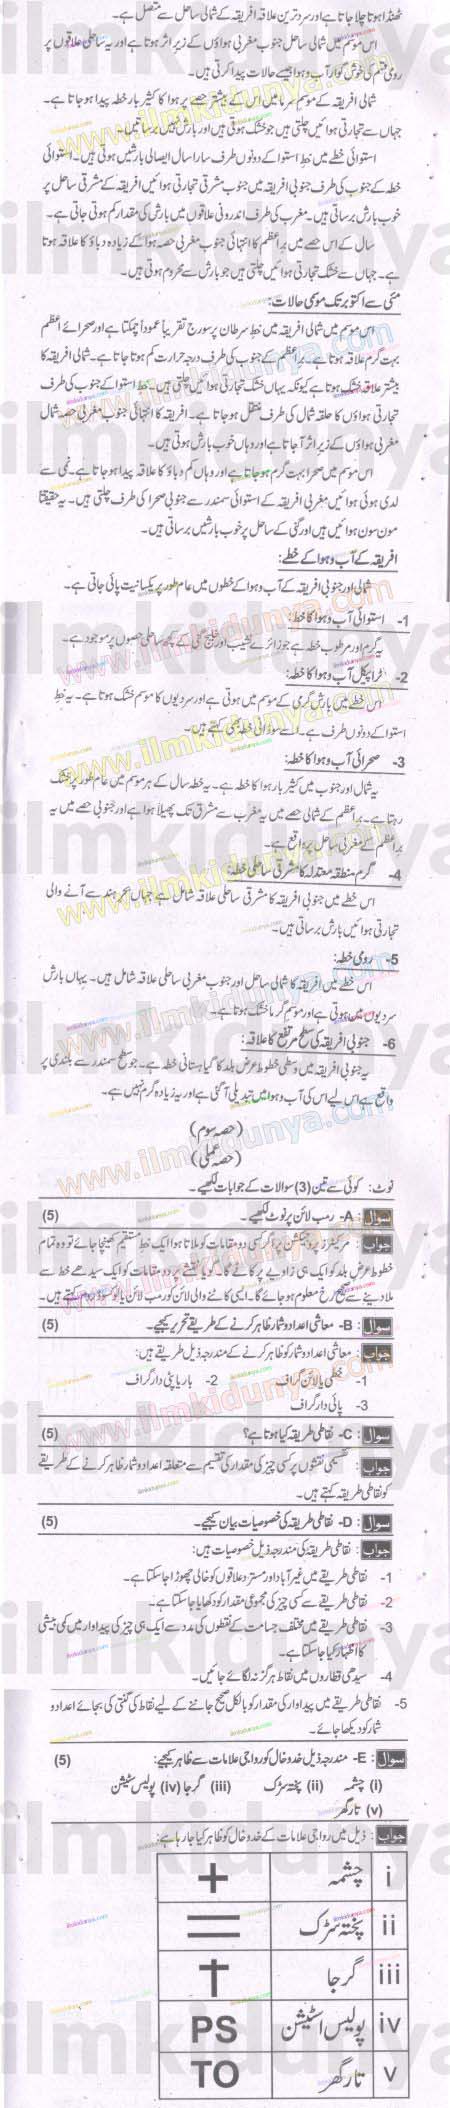 ٹھنڈا ہوتا چلا جاتا ہے اور سرد ترین علاقہ افریقہ کے شمالی ساحل سے متصل ہے۔
اس موسم میں شمالی ساحل جنوب مغربی ہواؤں کے زیر اثر ہوتا ہے اور یہ ساحلی علاقوں پر
رومی قسم کی خوش گوار آب و ہوا جیسے حالات پیدا کرتی ہیں۔
شمالی افریقہ کے موسم سرما میں اس کے بیشتر حصے پر ہوا کا کثیر بار خطہ پیدا ہو جاتا ہے۔
جہاں سے تجارتی ہوائیں چلتی ہیں جو خشک ہوتی ہیں اور بارش نہیں برساتیں۔
استوائی خطے میں خط استوا کے دونوں طرف سارا سال ایصالی بارشیں ہوتی ہیں۔ استوائی
خطہ کے جنوب کی طرف جنوبی افریقہ میں جنوب مشرقی تجارتی ہوائیں افریقہ کے مشرقی ساحل پر
خوب بارش برساتی ہیں۔ مغرب کی طرف اندرونی علاقوں میں بارش کی مقدار کم ہوتی جاتی ہے۔
سال کے اس حصے میں براعظم کا انتہائی جنوب مغربی حصہ ہوا کے زیادہ دباؤ کا علاقہ ہوتا
ہے۔ جہاں سے خشک تجارتی ہوائیں چلتی ہیں جو بارش سے محروم ہوتی ہیں۔
مئی سے اکتوبر تک موسمی حالات:
اس موسم میں شمالی افریقہ میں خط سرطان پر سورج تقریباً عموداً چمکتا ہے اور صحرائے اعظم
بہت گرم علاقہ ہوتا ہے۔ براعظم کے جنوب کی طرف درجہ حرارت کم ہوتا جاتا ہے۔ شمالی افریقہ کا
بیشتر علاقہ خشک ہوتا ہے کیونکہ یہاں خشک تجارتی ہوائیں چلتی ہیں۔ خط استوا کے جنوب کی
تجارتی ہواؤں کا حلقہ شمال کی طرف منتقل ہو جاتا ہے۔ افریقہ کا انتہائی جنوب مغربی حصہ شمال
مغربی ہواؤں کے زیر اثر آ جاتا ہے اور وہاں خوب بارش ہوتی ہیں۔
اس موسم میں صحرا بہت گرم ہو جاتا ہے اور وہاں کم دباؤ کا علاقہ پیدا ہو جاتا ہے۔ نمی سے
لدی ہوئی ہوائیں مغربی افریقہ کے استوائی سمندر سے جنوبی صحرا کی طرف چلتی ہیں۔ یہ حقیقتاً
مون سون ہوائیں ہیں اور گنی کے ساحل پر خوب بارشیں برساتی ہیں۔
افریقہ کے آب و ہوا کے خطے:
شمالی اور جنوبی افریقہ کے آب و ہوا کے خطوں میں عام طور پر یکسانیت پائی جاتی ہے۔
1- استوائی آب و ہوا کا خطہ:
یہ گرم اور مرطوب خطہ ہے جو زائرے نشیب اور خلیج گنی کے کچھ ساحلی حصوں پر موجود ہے۔
2- ٹراپیکل آب و ہوا کا خطہ:
اس خطے میں بارش گرمی کے موسم میں ہوتی ہے اور سردیوں کا موسم خشک ہوتا ہے۔ یہ خط
استوا کے دونوں طرف ہے۔ اسے سوڈانی خطہ بھی کہتے ہیں۔
3- صحرائی آب و ہوا کا خطہ:
یہ شمال اور جنوب میں کثیر بار ہوا کا خطہ ہے۔ یہ خطہ سال کے ہر موسم میں عام طور پر خشک
رہتا ہے۔ براعظم کے شمالی حصے میں یہ مغرب سے مشرق تک پھیلا ہوا ہے اور جنوبی حصے میں یہ
براعظم کے مغربی ساحل پر واقع ہے۔
4- گرم منطقہ معتدلہ کا مشرقی ساحلی خطہ:
اس خطے میں جنوبی افریقہ کا مشرقی ساحلی علاقہ شامل ہے جہاں بحر ہند سے آنے والی
تجارتی ہوائیں بارش برساتی ہیں۔
5- رومی خطہ:
اس خطے میں افریقہ کا شمالی ساحل اور جنوب مغربی ساحلی علاقہ شامل ہیں۔ یہاں بارش
سردیوں میں ہوتی ہے اور موسم گرما خشک ہوتا ہے۔
6- جنوبی افریقہ کی سطح مرتفع کا علاقہ:
یہ جنوبی افریقہ میں وسطی خطوط عرض بلد کا گیاہستانی خطہ ہے۔ جو سطح سمندر سے بلندی پر
واقع ہے اس لیے اس کی آب و ہوا میں تبدیلی آ گئی ہے اور یہ زیادہ گرم نہیں ہے۔
(حصہ سوم)
(حصہ عملی)
نوٹ: کوئی سے تین (3) سوالات کے جوابات لکھیے۔
سوال: A- رمب لائن پر نوٹ لکھیے۔ (5)
جواب: مرکیٹرز پروجیکشن پر اگر کسی دو مقامات کو ملاتا ہوا ایک خط مستقیم کھینچا جائے تو وہ تمام
خطوط عرض بلد کو ایک ہی زاویے پر کاٹے گا۔ گویا نقشے پر دو مقامات کو ایک سیدھے خط سے
ملا دینے سے صحیح رخ معلوم ہو جائے گا۔ ایسی کاٹنے والی لائن کو رمب لائن یا لوکسوڈروم کہتے ہیں۔
سوال: B- معاشی اعداد و شمار ظاہر کرنے کے طریقے تحریر کیجیے۔ (5)
جواب: معاشی اعداد و شمار کو ظاہر کرنے کے مندرجہ ذیل طریقے ہیں:
1- خطی یا لائن گراف 2- بار یا پٹی دار گراف
3- پائی دار گراف
سوال: C- نقاطی طریقہ کیا ہوتا ہے؟ (5)
جواب: تقسیمی نقشوں پر کسی چیز کی مقدار کی تقسیم سے متعلقہ اعداد و شمار ظاہر کرنے کے طریقے
کو نقاطی طریقہ کہتے ہیں۔
سوال: D- نقاطی طریقہ کی خصوصیات بیان کیجیے۔ (5)
جواب: نقاطی طریقہ کی مندرجہ ذیل خصوصیات ہیں:
1- نقاطی طریقے میں غیر آباد اور مسترد علاقوں کو خالی چھوڑا جا سکتا ہے۔
2- نقاطی طریقے سے کسی چیز کی مجموعی مقدار کو دکھایا جا سکتا ہے۔
3- نقاطی طریقے میں مختلف جسامت کے نقطوں کی مدد سے ایک ہی چیز کی پیداوار میں کمی بیشی
کا اظہار کیا جا سکتا ہے۔
4- سیدھی قطاروں میں نقاط ہرگز نہ لگائے جائیں۔
5- نقاطی طریقے میں پیداوار کی مقدار کو بالکل صحیح جاننے کے لیے نقاط کی گنتی کی بجائے اعداد و
شمار کو دیکھا جائے۔
سوال: E- مندرجہ ذیل خدوخال کو رواجی علامات سے ظاہر کیجیے: (5)
(i) چشمہ (ii) پختہ سڑک (iii) گرجا (iv) پولیس سٹیشن
(v) تار گھر
جواب: ذیل میں رواجی علامات کے خدوخال کو ظاہر کیا جا رہا ہے:
i چشمہ +
ii پختہ سڑک =
iii گرجا †
iv پولیس اسٹیشن PS
v تار گھر TO